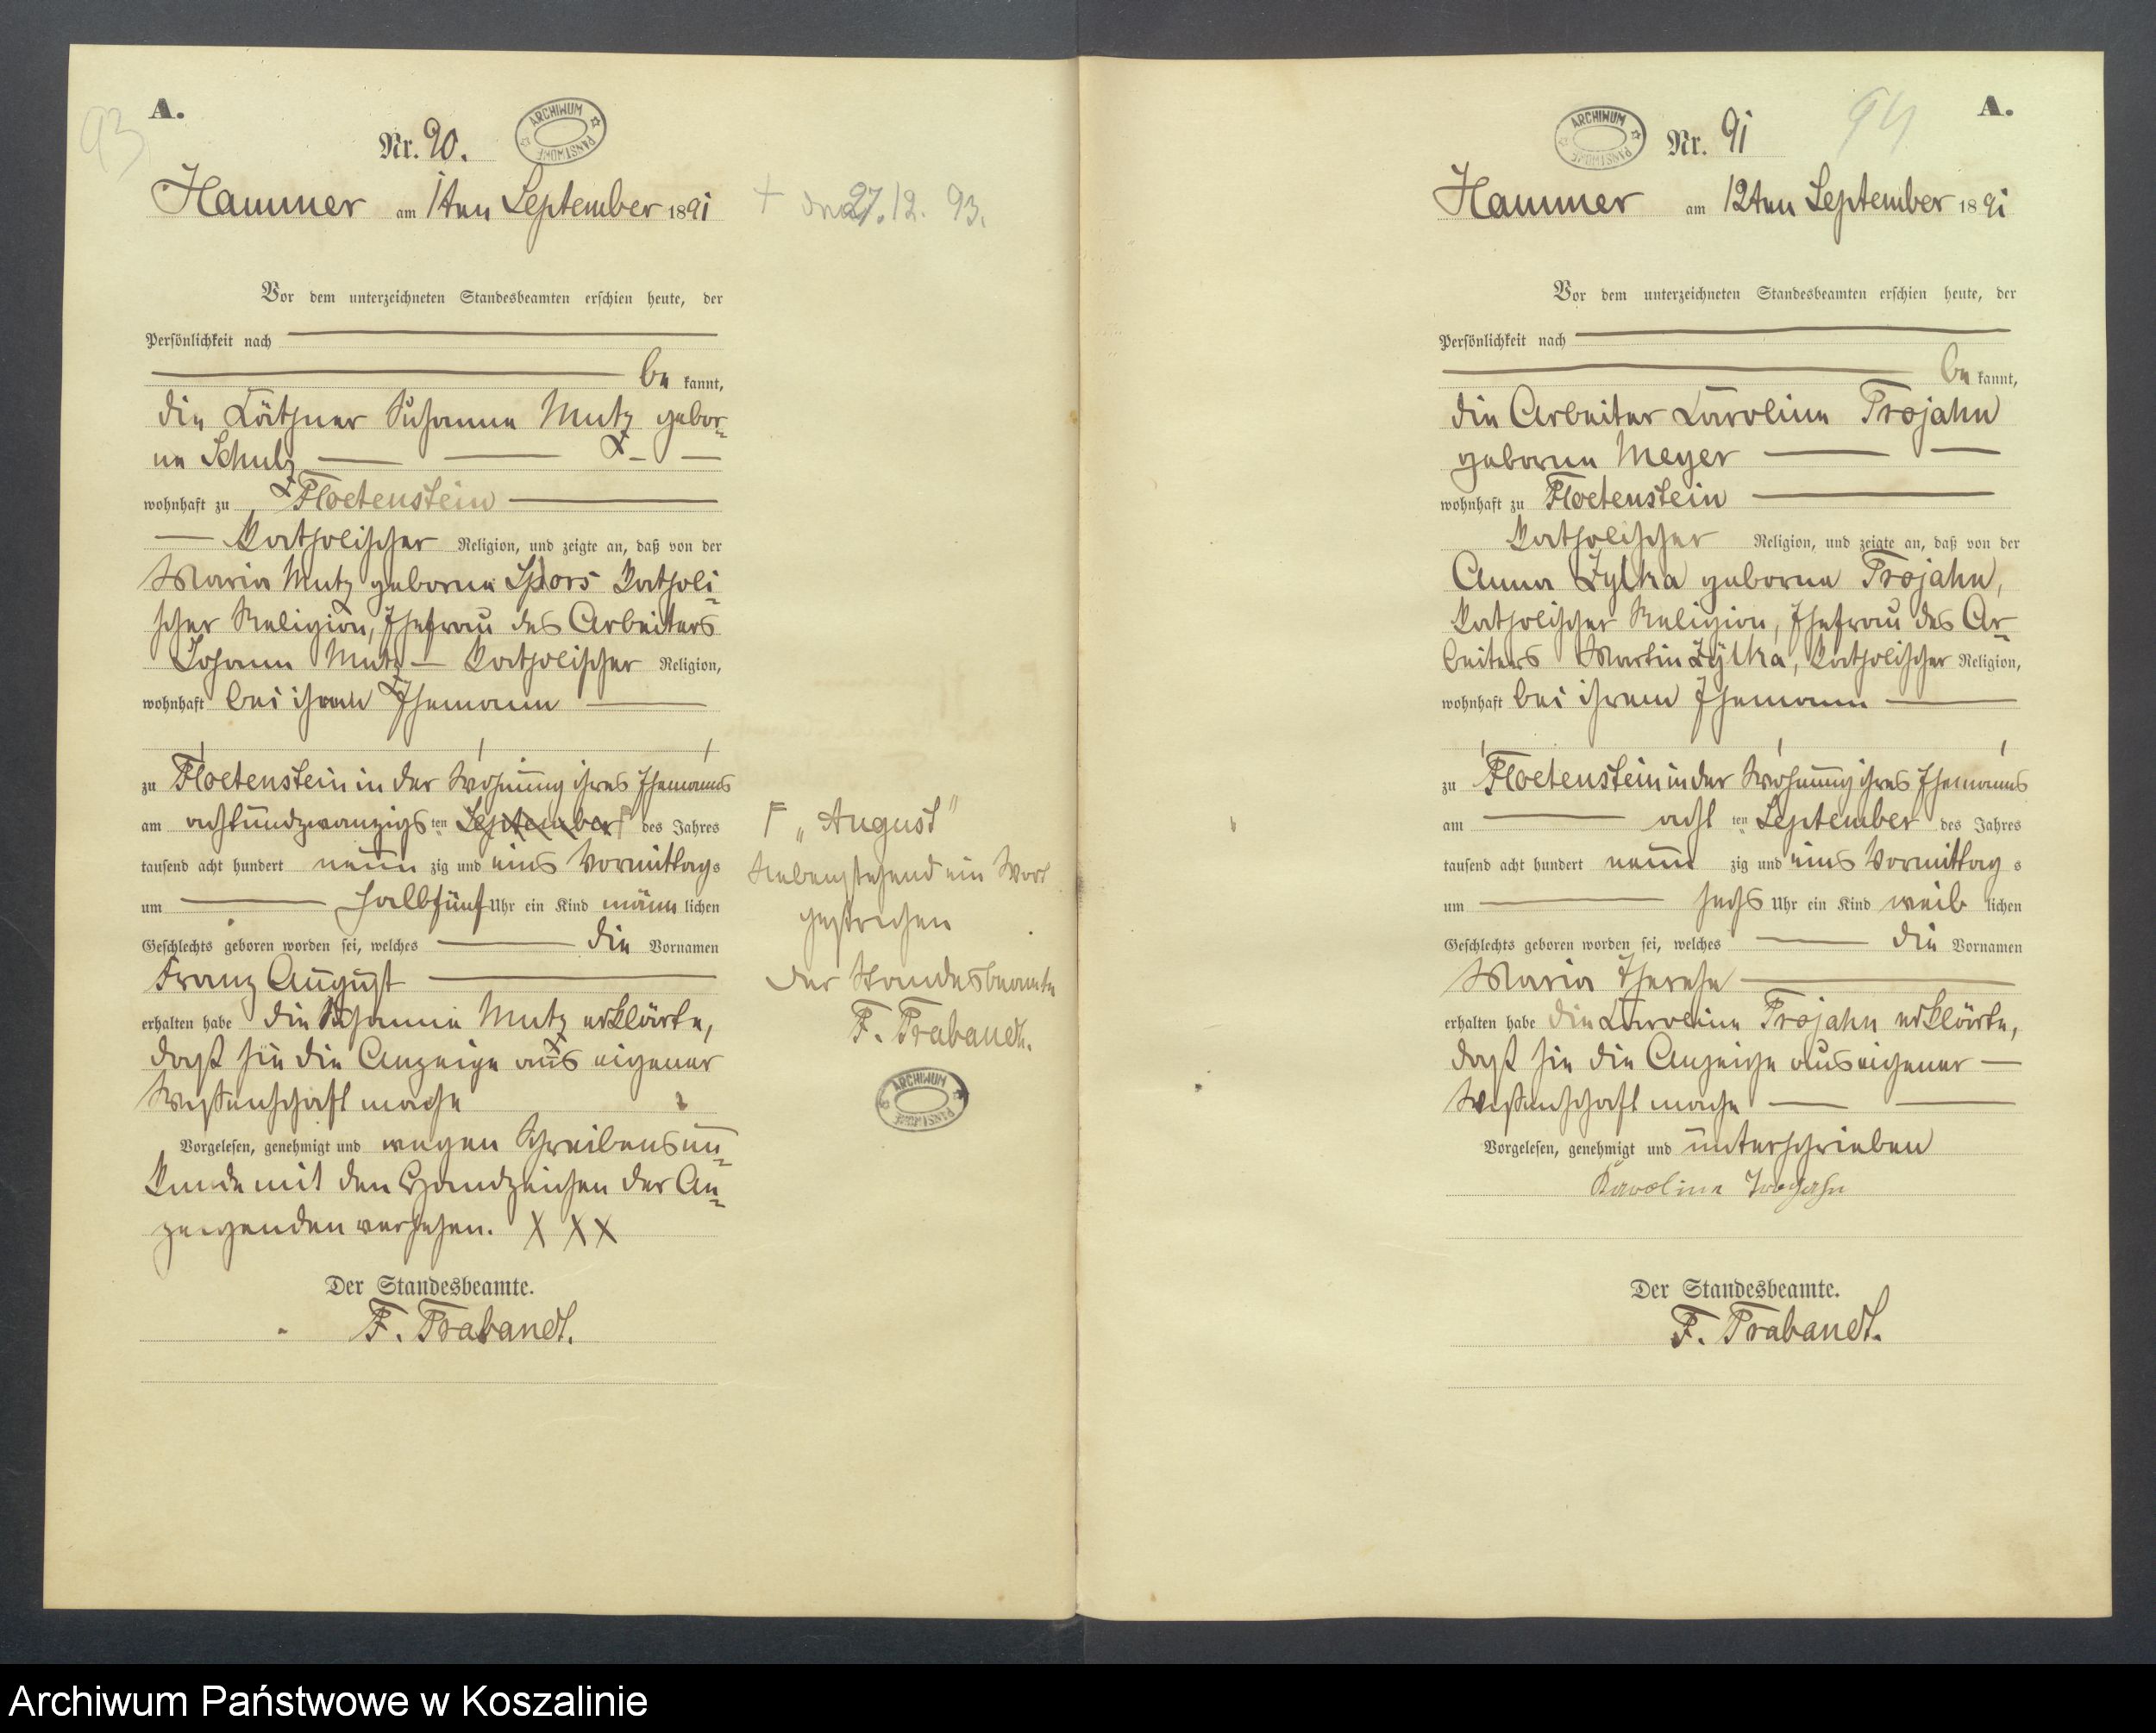 93
A.
Nr. 90.
ARCHIWUM PAŃSTWOWE
Hammer am 1ten September 1891
+ den 27.12. 93.
Vor dem unterzeichneten Standesbeamten erschien heute, der
Persönlichkeit nach
be kannt,
die Käthner Susanna Mutz gebor-
ne Schulz
wohnhaft zu Floetenstein
katholischer Religion, und zeigte an, daß von der
Maria Mutz geborne Spors katholi-
scher Religion, Ehefrau des Arbeiters
Johann Mutz katholischer Religion,
wohnhaft bei ihrem Ehemann
zu Floetenstein in der Wohnung ihres Ehemanns
am achtundzwanzigs ten September des Jahres
tausend acht hundert neun zig und eins Vormittags
um halb fünf Uhr ein Kind männ lichen
Geschlechts geboren worden sei, welches die Vornamen
Franz August
erhalten habe die Susanna Mutz erklärte,
daß sie die Anzeige aus eigener
Wissenschaft mache
Vorgelesen, genehmigt und wegen Schreibensun-
kunde mit den Handzeichen der An-
zeigenden versehen. X X X
Der Standesbeamte.
F. Trabandt.
F „August"
Nebenstehend ein Wort
gestrichen
Der Standesbeamte
F. Trabandt.
ARCHIWUM PAŃSTWOWE
94
A.
ARCHIWUM PAŃSTWOWE
Nr. 91
Hammer am 12ten September 1891
Vor dem unterzeichneten Standesbeamten erschien heute, der
Persönlichkeit nach
be kannt,
die Arbeiter Karoline Trojahn
geborne Meyer
wohnhaft zu Floetenstein
katholischer Religion, und zeigte an, daß von der
Anna Zylka geborne Trojahn,
katholischer Religion, Ehefrau des Ar-
beiters Martin Zylka, katholischer Religion,
wohnhaft bei ihrem Ehemann
zu Floetenstein in der Wohnung ihres Ehemanns
am acht ten September des Jahres
tausend acht hundert neun zig und eins Vormittag s
um sechs Uhr ein Kind weib lichen
Geschlechts geboren worden sei, welches die Vornamen
Maria Therese
erhalten habe die Karoline Trojahn erklärte,
daß sie die Anzeige aus eigener
Wissenschaft mache
Vorgelesen, genehmigt und unterschrieben
Karoline Trojahn
Der Standesbeamte.
F. Trabandt.
Archiwum Państwowe w Koszalinie